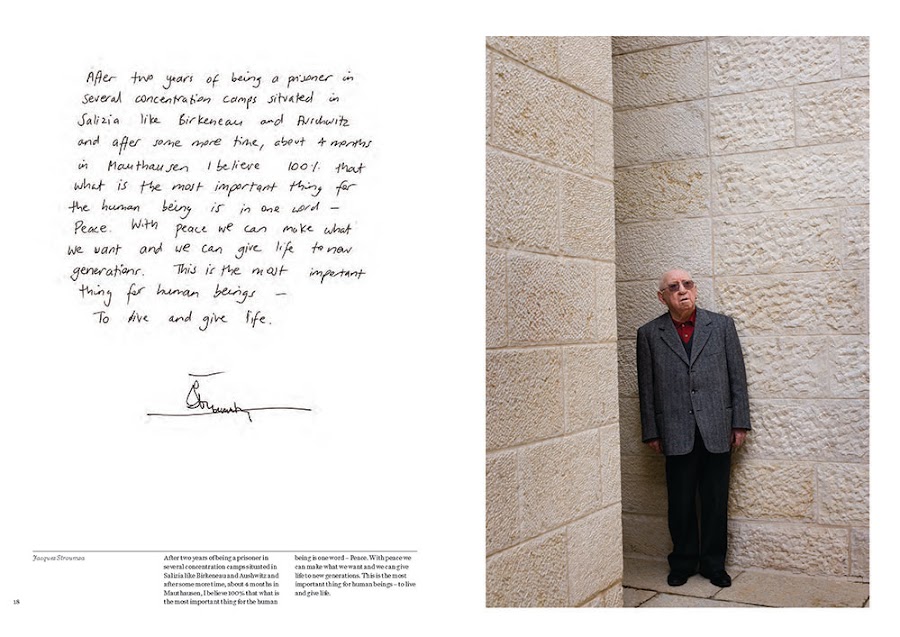 After two years of being a prisoner in
several concentration camps situated in
Salizia like Birkeneau and Auschwitz
and after some more time, about 4 months
in Mauthausen I believe 100% that
what is the most important thing for
the human being is in one word –
Peace. With peace we can make what
we want and we can give life to new
generations. This is the most important
thing for human beings –
To live and give life.
Stroumsa
Jacques Stroumsa
After two years of being a prisoner in
several concentration camps situated in
Salizia like Birkeneau and Aushwitz and
after some more time, about 4 months in
Mauthausen, I believe 100% that what is
the most important thing for the human
being is one word – Peace. With peace we
can make what we want and we can give
life to new generations. This is the most
important thing for human beings – to live
and give life.
18